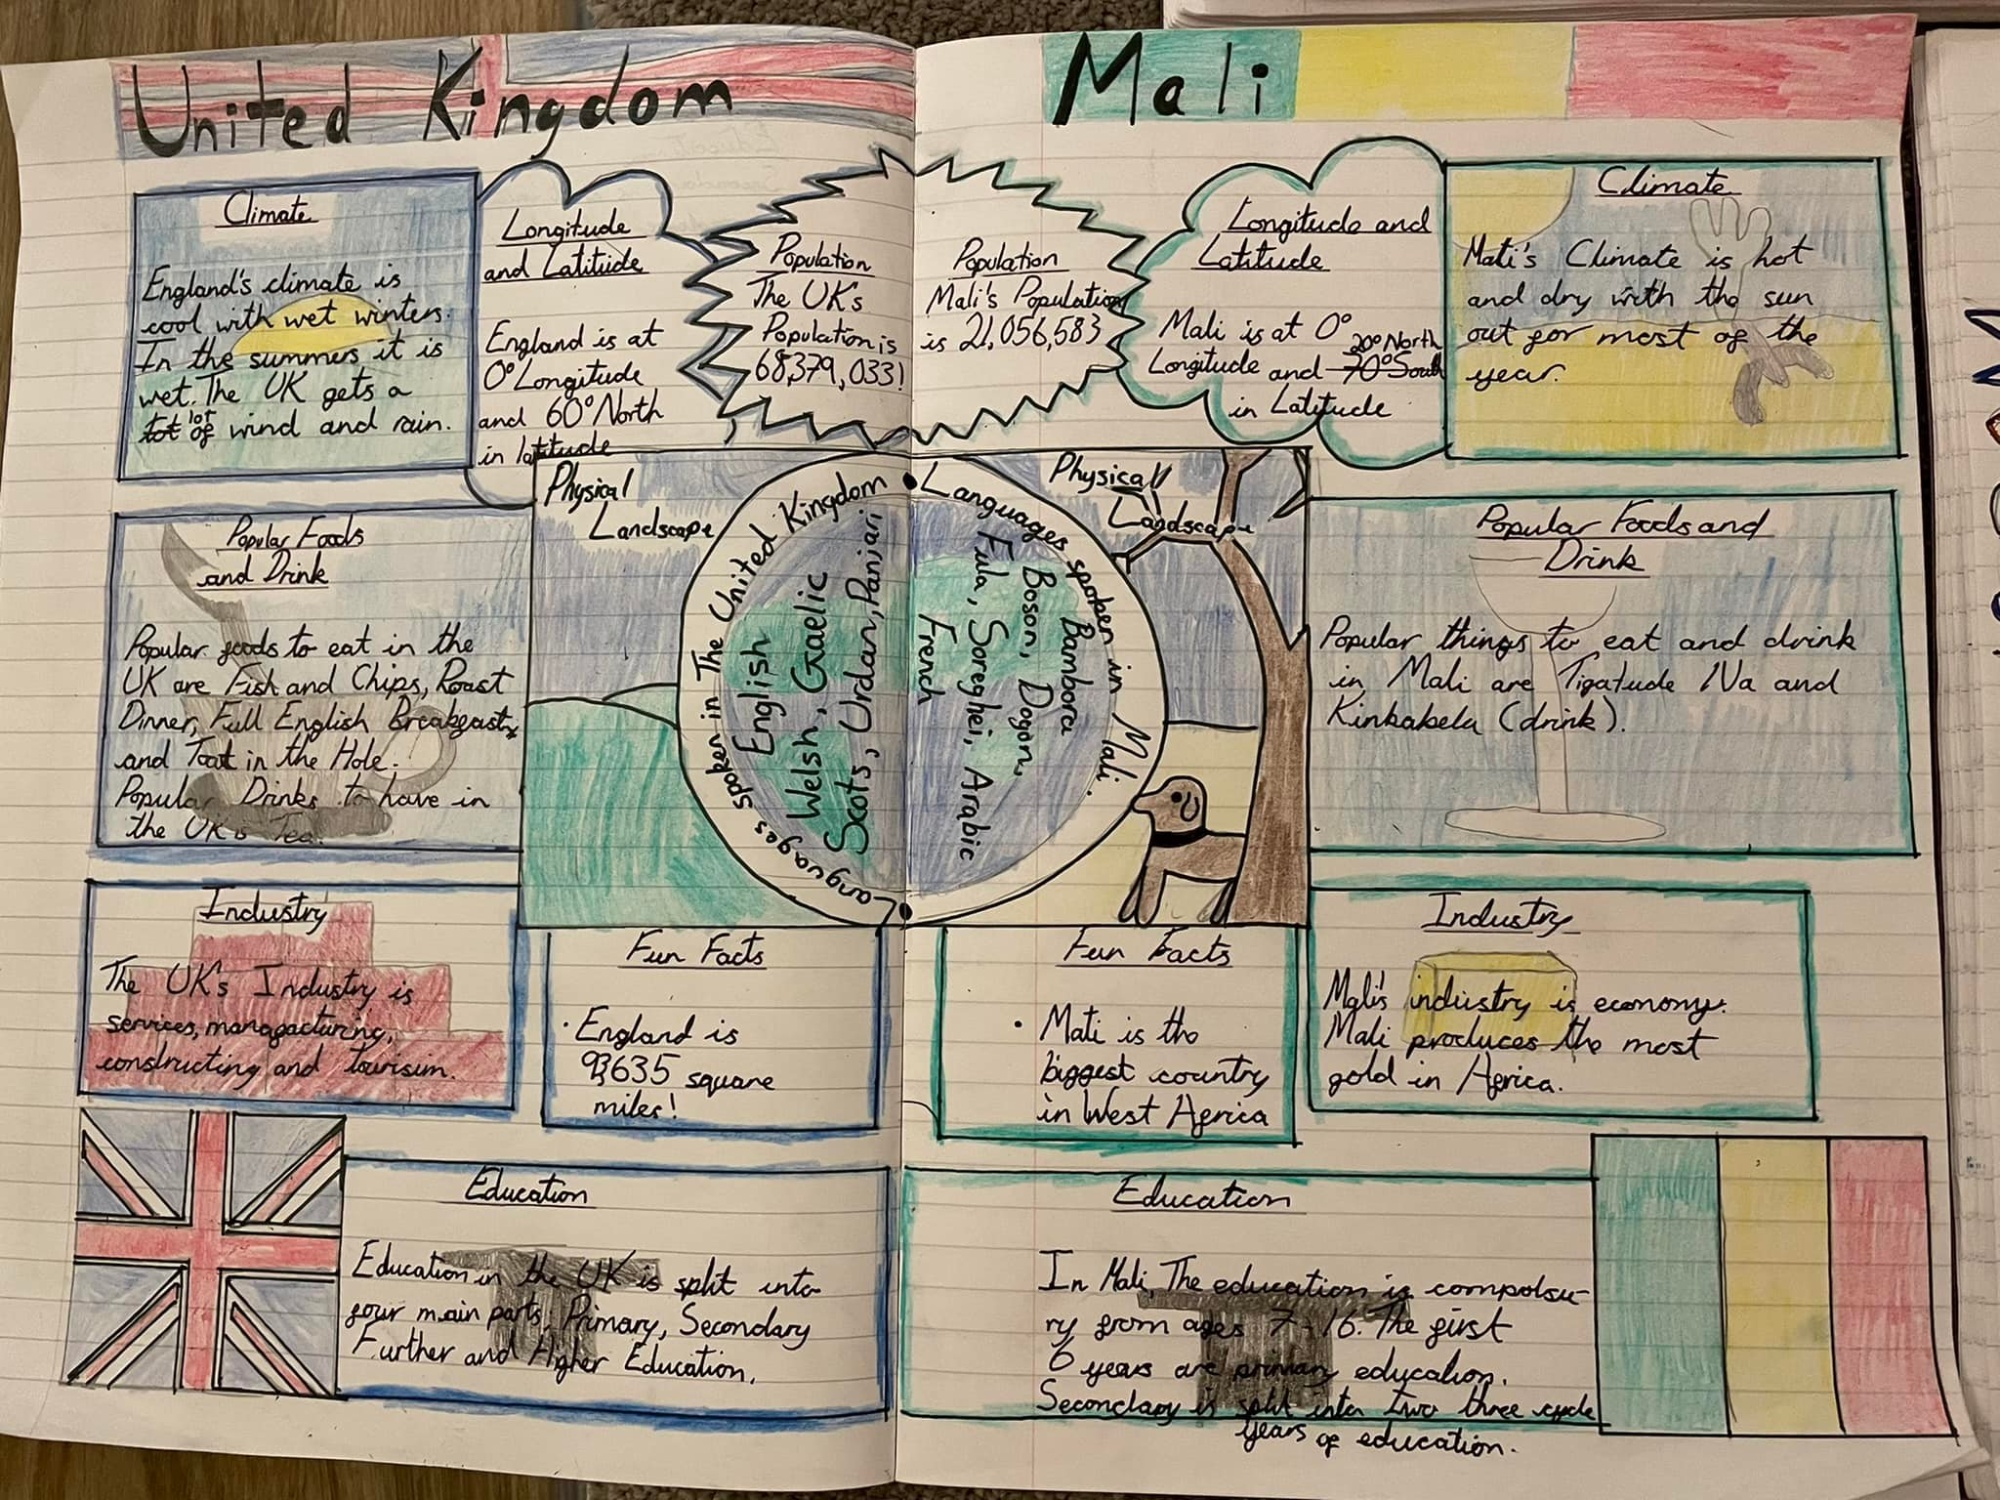 United Kingdom
Climate
England's climate is
cool with wet winters.
In the summers it is
wet. The UK gets a
lot
of wind and rain.
Longitude
and Latitude
England is at
0° Longitude
and 60° North
in latitude
Population
The UKs
Population is
68,379,033!
Popular Foods
and Drink
Popular foods to eat in the
UK are Fish and Chips, Roast
Dinner, Full English Breakfast,
and Toat in the Hole.
Popular Drinks to have in
the UK is Tea.
Physical
Landscape
Languages spoken in The United Kingdom
English
Welsh, Gaelic
Scots, Urdan, Panjari
Industry
The UK's Industry is
services, managacturing,
constructing and tourisim.
Fun Facts
· England is
93635 square
miles!
Education
Education in the UK is split into
four main parts; Primary, Secondary
Further and Higher Education.
Mali
Population
Mali's Population
is 21,056,583
Longitude and
Latitude
Mali is at 0°
Longitude and 70° South
20° North
in Latitude
Climate
Mali's Climate is hot
and dry with the sun
out for most of the
year.
Physical
Landscape
Languages spoken in Mali.
Bambora
Boson, Dogon,
Fula, Soreghei, Arabic
French
Popular Foods and
Drink
Popular things to eat and drink
in Mali are Tigatude Na and
Kinkabela (drink).
Fun Facts
· Mali is the
biggest country
in West Africa
Industry
Mali's industry is economy.
Mali produces the most
gold in Africa.
Education
In Mali, The education is compolsu-
ry from ages 7-16. The first
6 years are primary education.
Secondary is split into two three cycle
years of education.